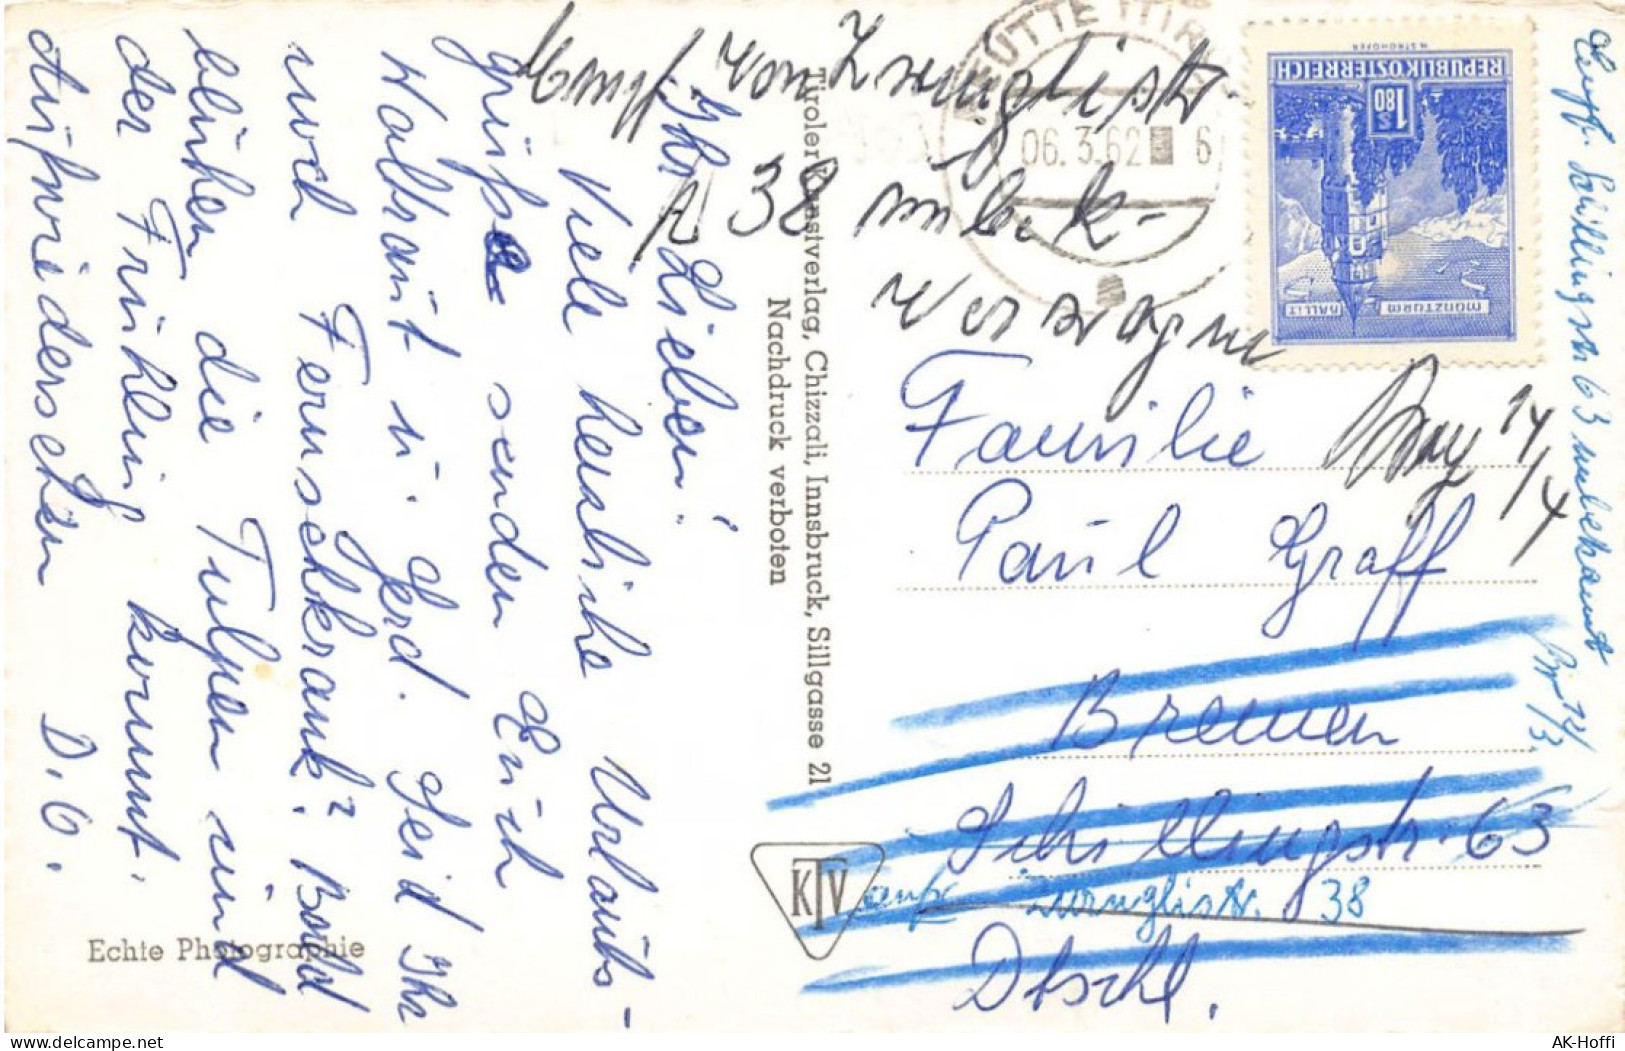 Ihr Lieben!
Viele herzliche Urlaubs-
grüße senden Euch
Waltraut u. Gerd. Seid Ihr
noch Fernsehkrank? Bald
blühen die Tulpen und
der Frühling kommt.
Aufwiedersehen D. O.
Echte Photographie
Tiroler Kunstverlag, Chizzali, Innsbruck, Sillgasse 21
Nachdruck verboten
KTV
REUTTE (TIR
06.3.62 6
REPUBLIK ÖSTERREICH
S 1.80
MÜNZTURM HALL i.T.
H. STROHOFER
Empf von Zwinglistr.
38 unbek-
Verzogen
14/4
Familie
Paul Graff
Bremen
Schillingstr. 63
auf Zwinglistr. 38
Dtschl.
Empf. Schillingstr 63 unbekannt
12/3.
AK-Hoffi